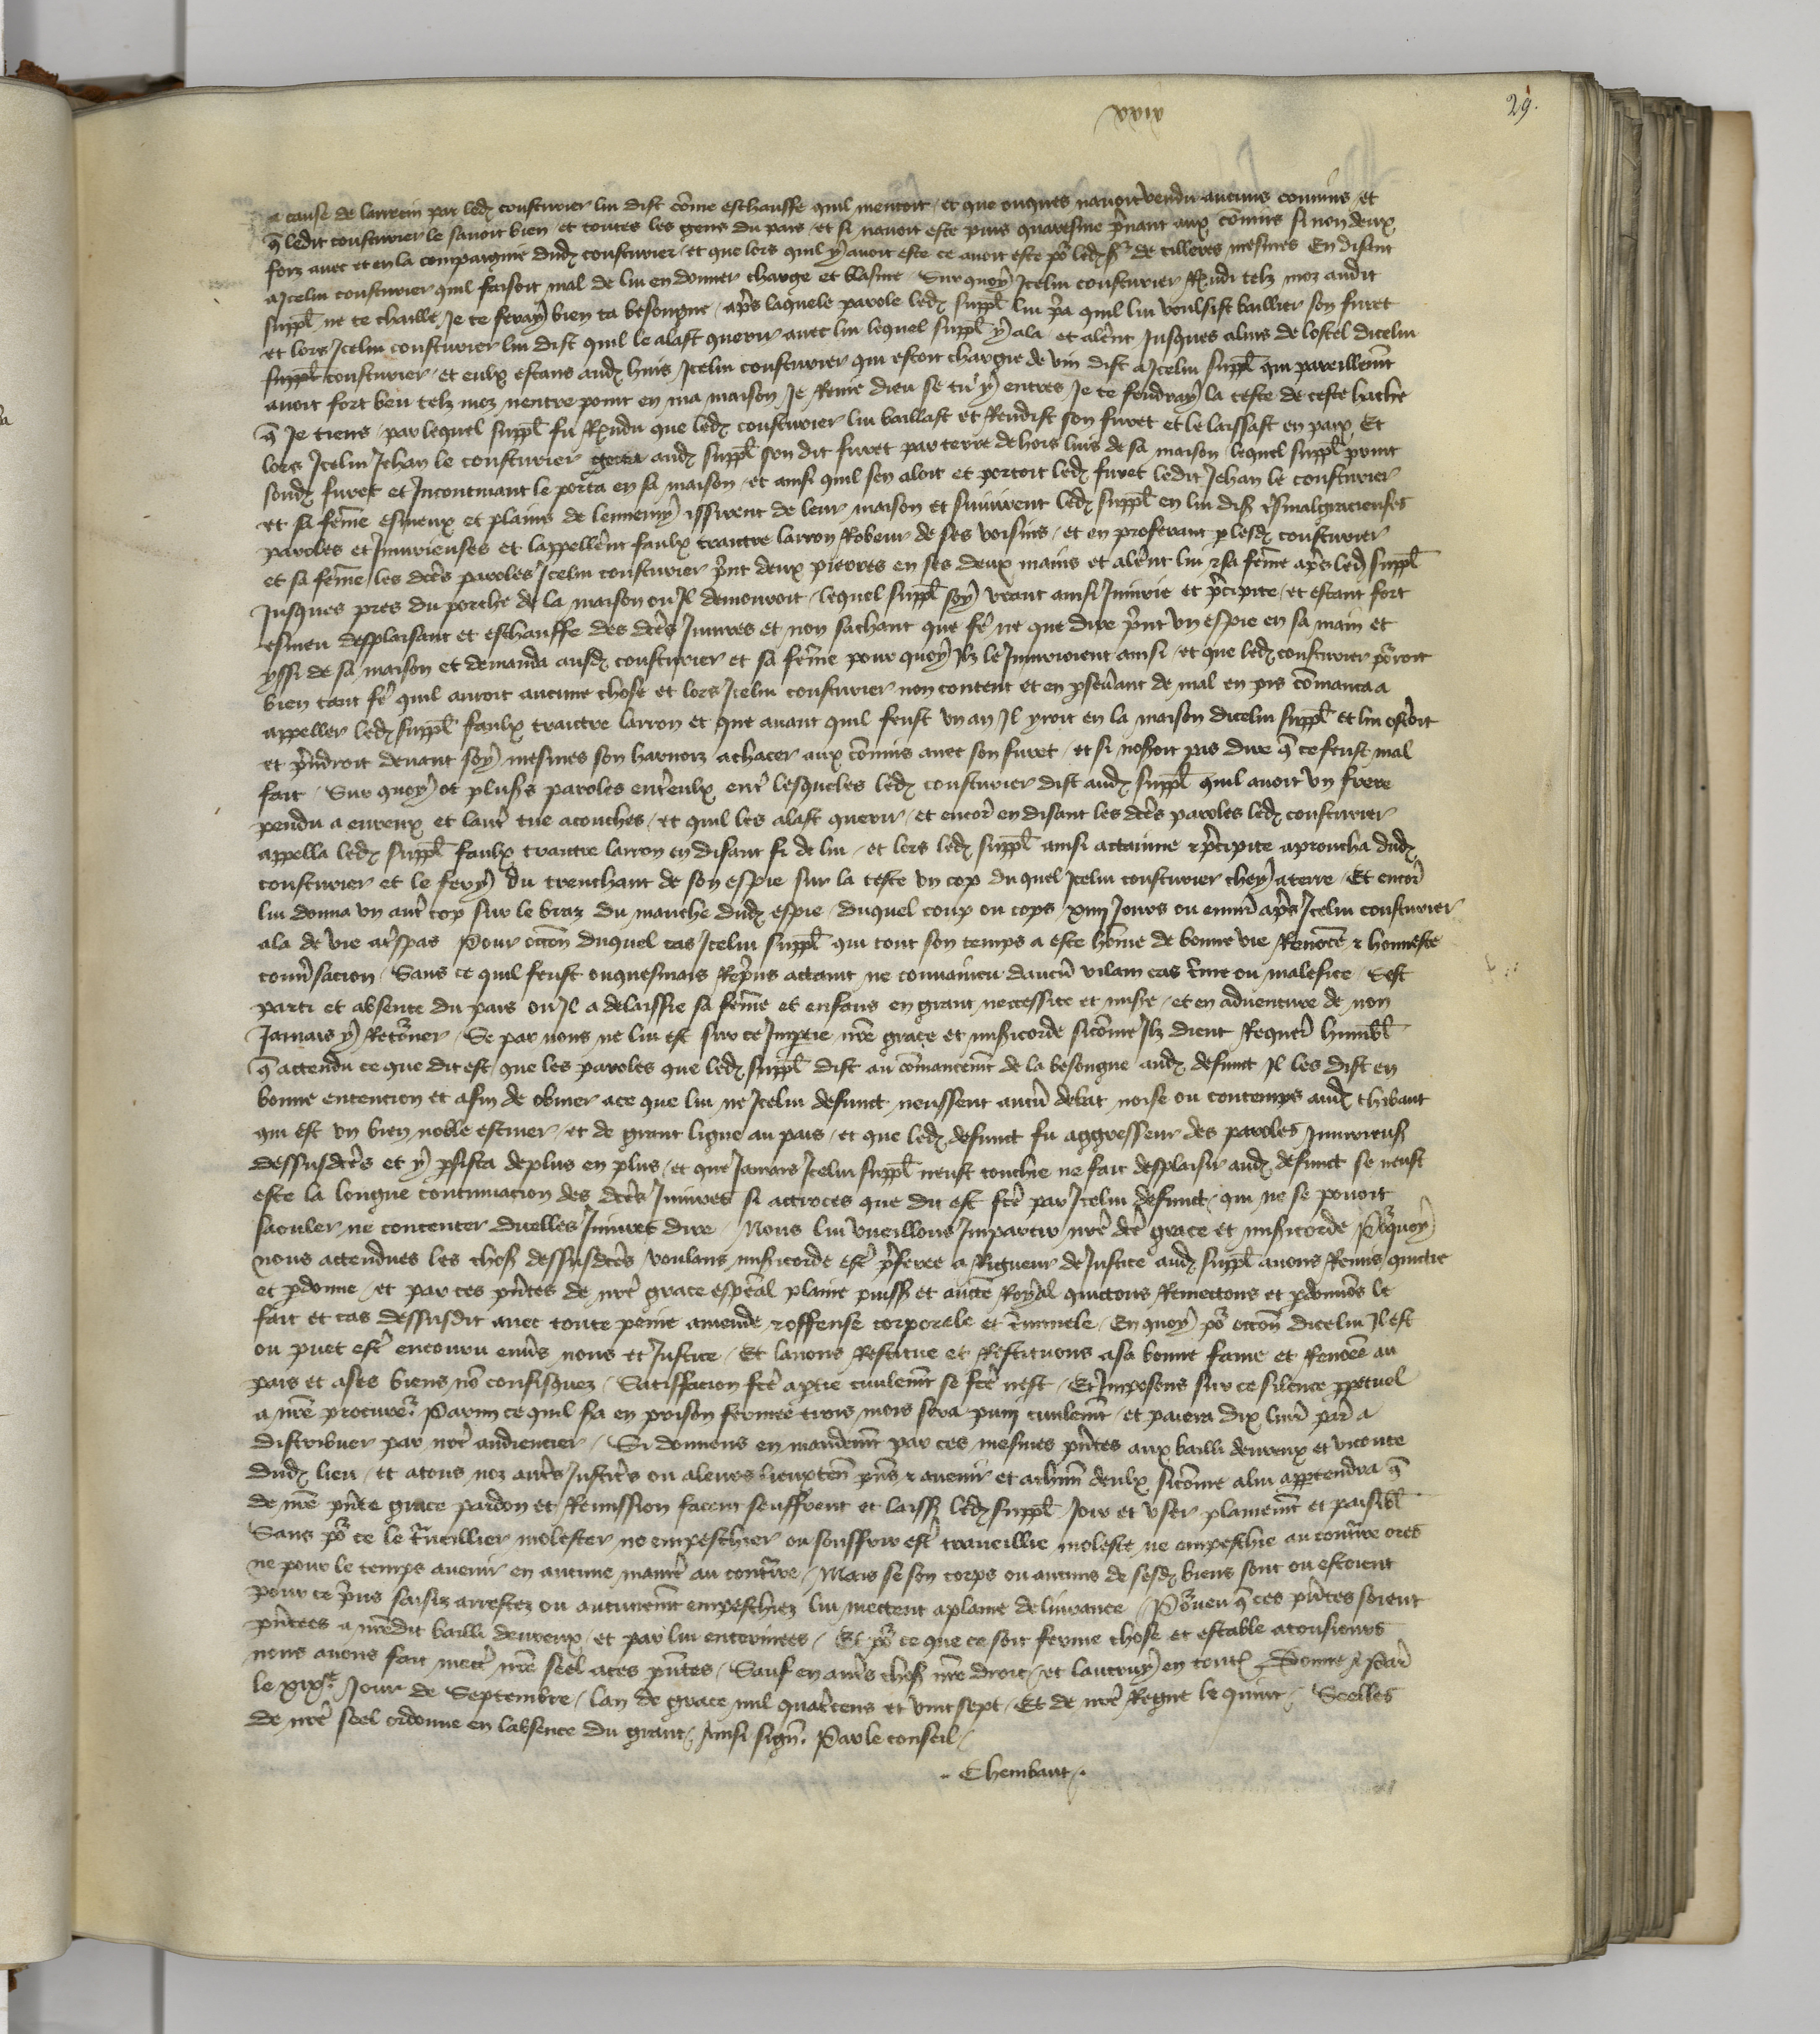 xxix
29.
a cause de larrecin par led cousturier lui dist cõme eschauffe quil mentoit / et que onques navoit vendu aucuns connins / et
q̃ ledit cousturier le savoit bien et toutes les gens du pais / et si navoit este puis quaresme pr̃nant aux cõnins si non deux
foiz avec et en la compaignie dud cousturier / et que lors quil y avoit este ce avoit este po led de tilleres mesmes En disant
a Icelui cousturier quil faisoit mal de lui en donner charge et blasme Sur quoy Icelui cousturier Rendi telz moz audit
suppl ne te chaille Je te feray bien ta besongne / apr̃s laquele parole led suppl lui pr̃a quil lui voulsist baillier son furet
et lors Icelui cousturier lui dist quil le alast querir avec lui lequel suppl y ala et alẽrt Jusques aluis de lostel dicelui
suppl cousturier / et eulx estans aud huis Icelui cousturier qui estoit chargie de vin dist a Icelui suppl qui pareillem̃t
avoit fort beu telz moz nentre point en ma maison Je Renie dieu se tu y entres Je te fendray la teste de ceste hache
q̃ Je tiens / par lequel suppl fu Rendu que led cousturier lui baillast et Rendist son furet et le laissast en paix Et
lors Icelui Jehan le cousturier getta aud suppl son dit furet par terre dehors luis de sa maison lequel suppl print
sond furet et Incontinant le porta en sa maison / et ainsi quil sen aloit et portoit led furet ledit Jehan le cousturier
et sa fẽme esmeux et plains de lennemy yssirent de leur maison et suivirent led suppl en lui dis malgracieuses
paroles et Injurieuses et lappellẽrt faulx traictre larron Robeur de ses voisins / et en proferant p lesd cousturier
et sa fẽme les dctes paroles Icelui cousturier pr̃nt deux pierres en ses deux mains et alẽrt lui et sa fẽme apr̃s led suppl
Jusques pres du porche de la maison ou Il demouroit / lequel suppl soy veant ainsi Injurie et pr̃cipite / et estant fort
esmeu desplaisant et eschauffe des dctes Injures et non sachant que fẽ ne que dire pr̃nt un espie en sa main et
yssi de sa maison et demanda ausd cousturier et sa fẽme pour quoy Ilz le Injurioient ainsi / et que led cousturier po͂roit
bien tant fẽ quil auroit aucune chose et lors Icelui cousturier non content et en pseuerant de mal en pis cõmanca a
appeller led suppl faulx traictre larron et que avant quil feust un an Il yroit en la maison dicelui suppl et lui
et pr̃ndroit devant soy mesmes son harnoiz achacer aux cõnins avec son furet / et si nosoit pas dire q̃ ce feust mal
fait / Sur quoy ot plus̃s paroles entr̃eulx entr̃ lesqueles led cousturier dist aud suppl quil avoit un frere
pendu a evreux et lautr̃ tue aconches / et quil les alast querir / et encor̃ en disant les dctes paroles led cousturier
appella led suppl faulx traictre larron en disant fi de lui / et lors led suppl ainsi attainne et pr̃cipite aproucha dud
cousturier et le fery du trenchant de son espie sur la teste un cop du quel Icelui cousturier chey aterre / Et encor̃
lui donna un autr̃ cop sur le braz du manche dud espie / duquel coup ou cops / xiiii Jours ou envir̃ apr̃s Icelui cousturier
ala de vie atr̃spas Pour occõn duquel cas Icelui suppl qui tout son temps a este hõme de bonne vie Renõmee et honneste
conv̄sacion / Sans ce quil feust onquesmais Repr̃ns attaint ne convaincu daucũ vilain cas cr̃ime ou malefice / Sest
parti et absente du pais ou Il a delaissie sa fẽme et enfans en grant neccessite et mis̃ie / et en adventure de non
Jamais y Reto͂ner / Se par nous ne lui est sur ce Impartie nr̃e grace et mis̃icorde sicõme Ilz dient Requer̃ humbl
q̃ attendu ce que dit est / que les paroles que led suppl dist au cõmancem̃t de la besongne aud defunct Il les dist en
bonne entencion et afin de obvier ace que lui ne Icelui defunct neussent aucũ debat noise ou contemps aud thibaut
qui est un bien noble escuier / et de grant ligne au pais / et que led defunct fu aggresseur des paroles Injurieus̃
dessusdctes et y p̃sista deplus en plus / et que Jamais Icelui suppl neust touchie ne fait desplaisir aud defunct se neust
este la longue continuacion des dctes Injures si attroces que dit est fctẽ par Icelui defunct / qui ne se povoit
saouler ne contenter duelles Injures dire / Nous lui vueillons Impartir nr̃e dctẽ grace et mis̃icorde Po͂quoy
nous attendues les chos̃ dessusdctes voulans mis̃icorde estr̃ pr̃feree a Rigueur de Justice aud suppl avons Remis quictie
et pdonne / et par ces pñtes de nr̃e grace esp̃eal plaine puiss̃ et aucte͂ Royal quictons Remectons et pdonnõs le
fait et cas dessusdit avec toute peine amende et offense corporele et cr̃iminele / En quoy po͂ occõn dicelui Il est
ou puet estr̃ encouru env̄s nous et Justice / Et lavons Restitue et Restituons asa bonne fame et Renõmee au
pais et ases biens nõ confisquez / Satisfacion fctẽ aptie civilem̃t se fctẽ nest / Et Imposons sur ce silence ppetuel
a nr̃e procure͂ / Parmy ce quil  en prison fermee trois mois sera puni civilem̃t / et paiera dix livr̃ par̃ a
distribuer par nr̃e audiencier / Si donnons en mandem̃t par ces mesmes pñtes aux bailli devreux et viconte
dud lieu / et atous noz autr̃s Justic̃s ou aleurs lieuxten̄ pñs et avenir et achũn deulx sicõme alui appartendra q̃
de nr̃e pñte grace pardon et Remission facent seuffrent et laiss̃ led suppl Joir et user plainem̃t et paisibl̃
Sans po͂ ce le tr̃aveillier molester ne empeschier ou souffrir estr̃ travaillie moleste ne empeschie au contr̃aire ores
ne pour le temps avenir en aucune manier̃ au contr̃aire / Mais se son corps ou aucuns de sesd biens sont ou estoient
pour ce pr̃ns saisiz arrestez ou autrem̃t empeschiez lui mectent aplaine delivrance / Po͂veu q̃ ces pñtes soient
pñtees a nr̃edit bailli devreux / et par lui enterinees / Et po͂ ce que ce soit ferme chose et estable atousiours
nous avons fait mectr̃ nr̃e seel aces pñtes / Sauf en autr̃s chos̃ nr̃e droit / et lautruy en toutes / Donne a par̃
le xix Jour de Septembre / lan de grace mil quatr̃cens et vint sept / Et de nr̃e Regne le quint / Seelles
de nr̃e seel ordonne en labsence du grant / Ainsi sign̄. Par le conseil /
.. Chembaut /.